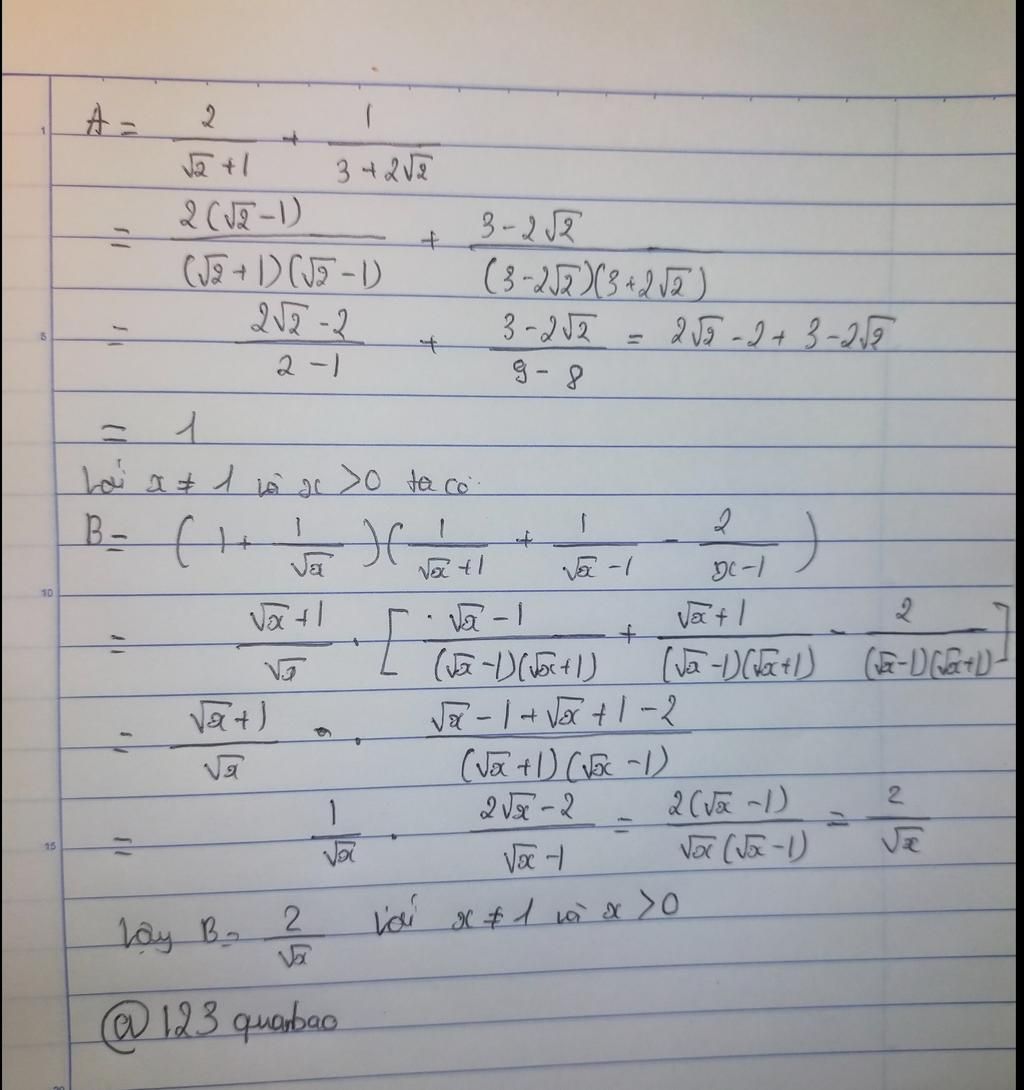 A = 2/(√2 + 1) + 1/(3 + 2√2)
= 2(√2 - 1)/((√2 + 1)(√2 - 1)) + (3 - 2√2)/((3 - 2√2)(3 + 2√2))
= (2√2 - 2)/(2 - 1) + (3 - 2√2)/(9 - 8) = 2√2 - 2 + 3 - 2√2
= 1
Với x ≠ 1 và x > 0 ta có:
B = (1 + 1/√x)(1/(√x + 1) + 1/(√x - 1) - 2/(x - 1))
= (√x + 1)/√x . [(√x - 1)/((√x - 1)(√x + 1)) + (√x + 1)/((√x - 1)(√x + 1)) - 2/((√x - 1)(√x + 1))]
= (√x + 1)/√x . (√x - 1 + √x + 1 - 2)/((√x + 1)(√x - 1))
= 1/√x . (2√x - 2)/(√x - 1) = 2(√x - 1)/(√x(√x - 1)) = 2/√x
Vậy B = 2/√x Với x ≠ 1 và x > 0
@123 quanbao